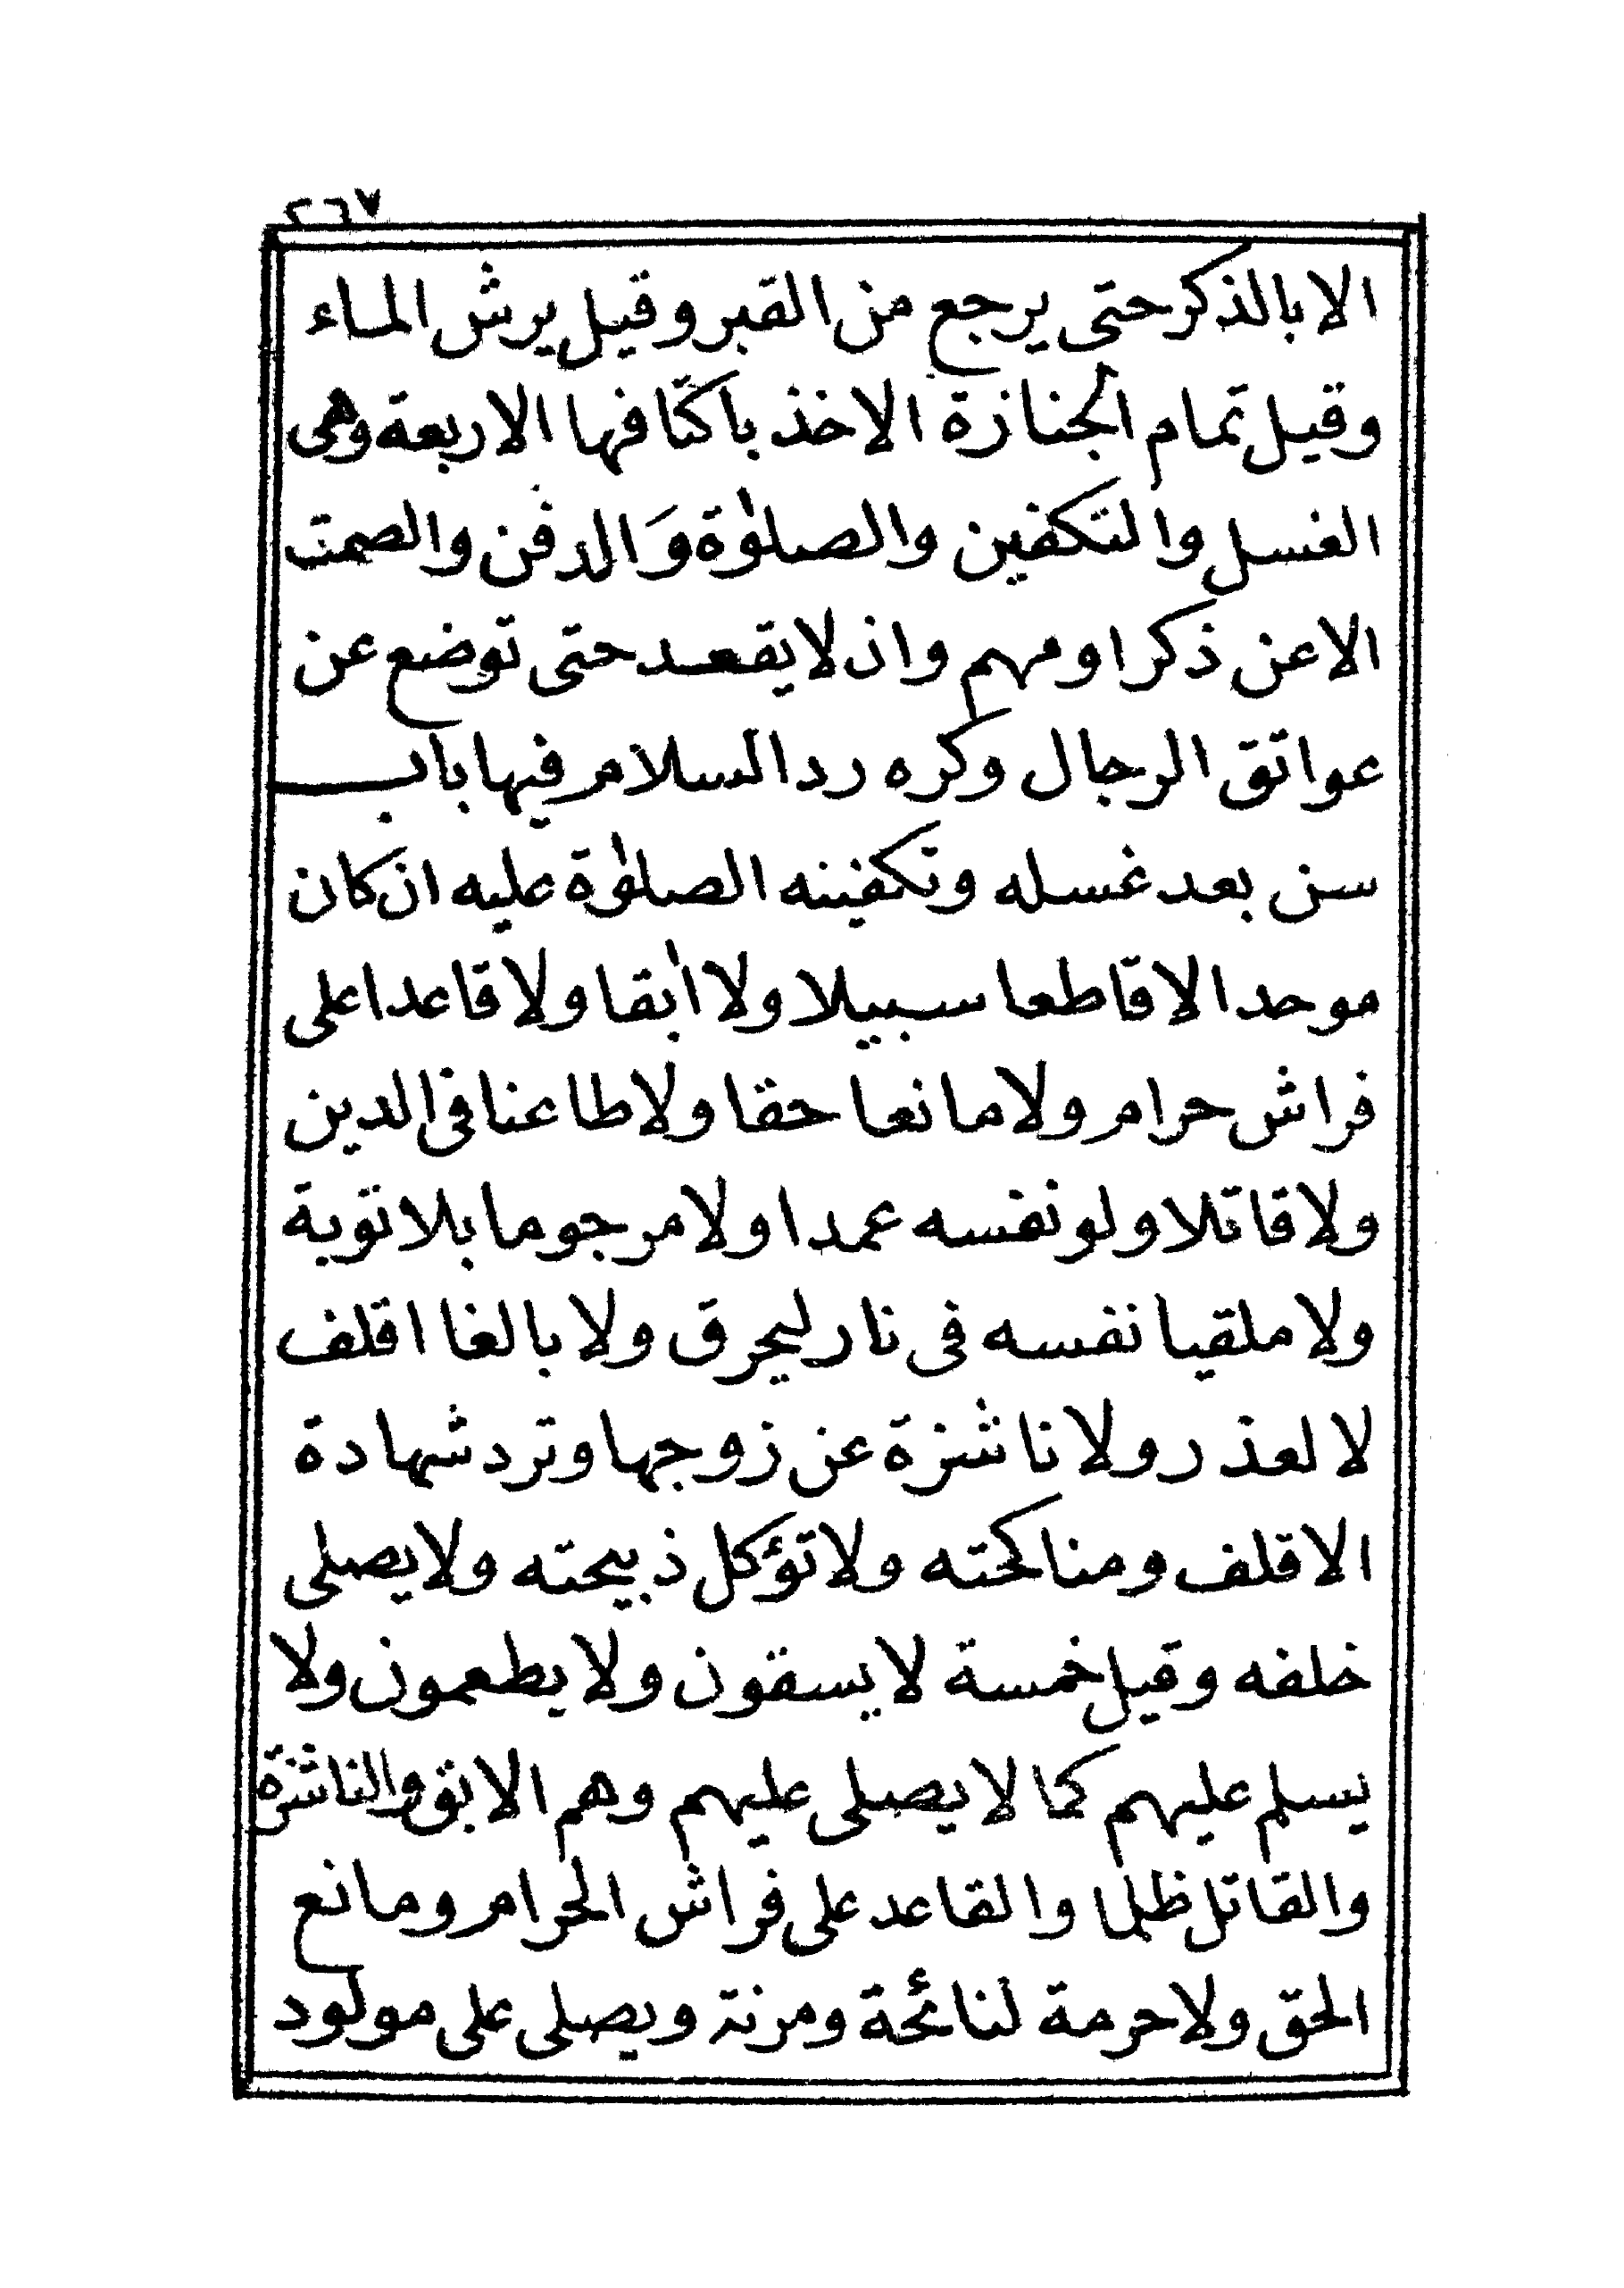 ٢٦٧
الا بالذكر حتى يرجع من القبر وقيل يرش الماء
وقيل تمام الجنازة الاخذ باكنافها الاربعة وهى
الغسل والتكفين والصلوٰة وَالدفن والصمت
الا عن ذكر او مهم وان لا يقعد حتى توضع عن
عواتق الرجال وكره رد السلام فيها باب
سن بعد غسله وتكفينه الصلوٰة عليه ان كان
موحدا لا قاطعا سبيلا ولا اٰبقا ولا قاعدا على
فراش حرام ولا مانعا حقا ولا طاعنا فى الدين
ولا قاتلا ولو نفسه عمدا ولا مرجوما بلا توبة
ولا ملقيا نفسه فى نار ليحرق ولا بالغا اقلف
لا لعذر ولا ناشزة عن زوجها وترد شهادة
الاقلف ومناكحته ولا تؤكل ذبيحته ولا يصلى
خلفه وقيل خمسة لا يسقون ولا يطعمون ولا
يسلم عليهم كما لا يصلى عليهم وهم الابق والناشزة
والقاتل ظلما والقاعد على فراش الحرام ومانع
الحق ولا حرمة لنائحة ومرنة ويصلى على مولود